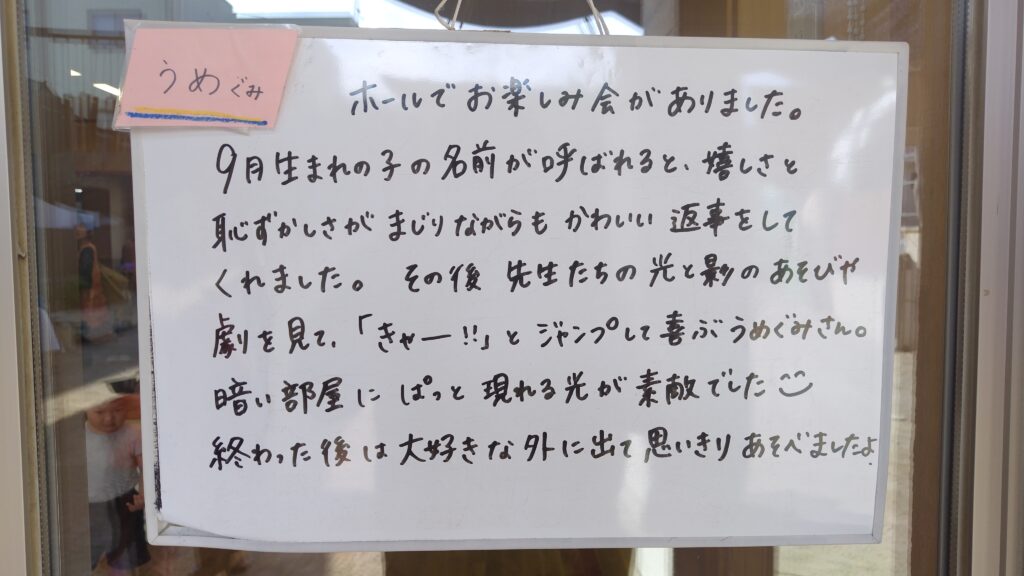 うめぐみ
ホールでお楽しみ会がありました。
9月生まれの子の名前が呼ばれると、嬉しさと
恥ずかしさがまじりながらもかわいい返事をして
くれました。その後先生たちの光と影のあそびや
劇を見て、「きゃー!!」とジャンプして喜ぶうめぐみさん。
暗い部屋にぱっと現れる光が素敵でした
終わった後は大好きな外に出て思いきりあそべましたよ。